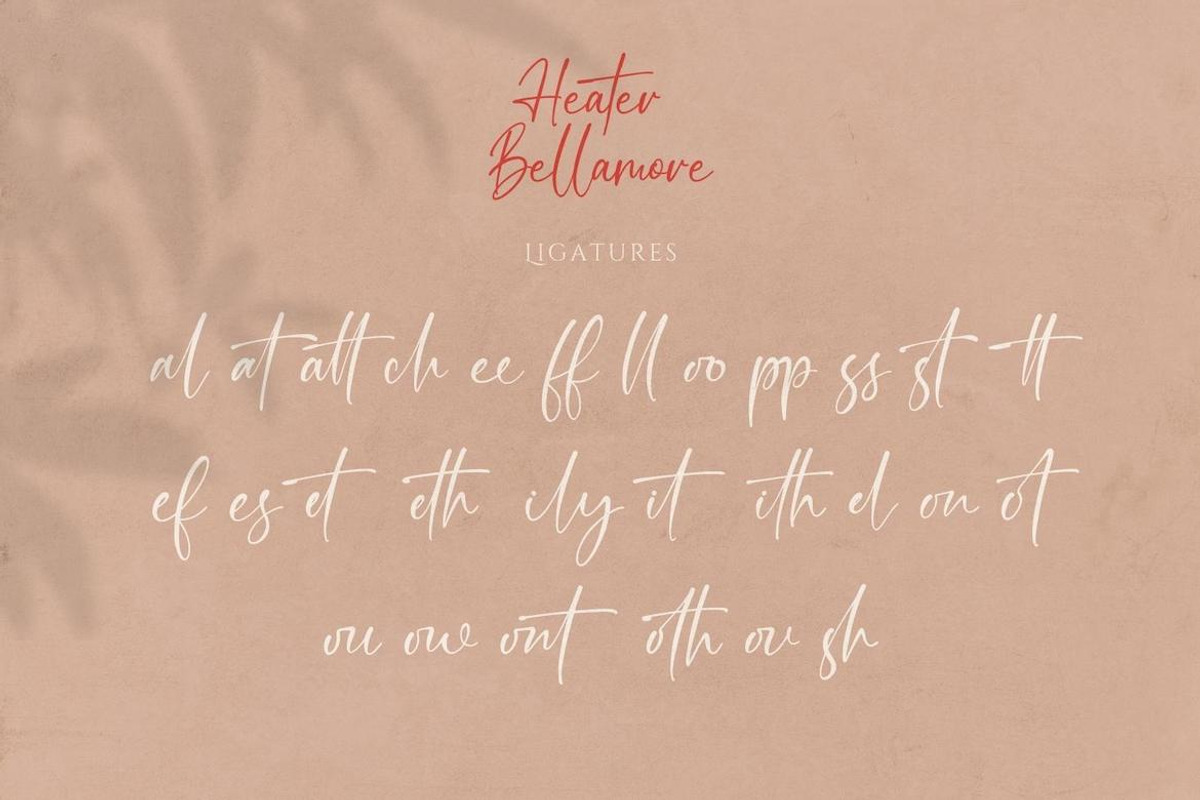 Heater
Bellamore
LIGATURES
al at att ch ee ff ll oo pp ss st tt
ef es et eth ily it ith el on ot
ou ow ont oth ov sh